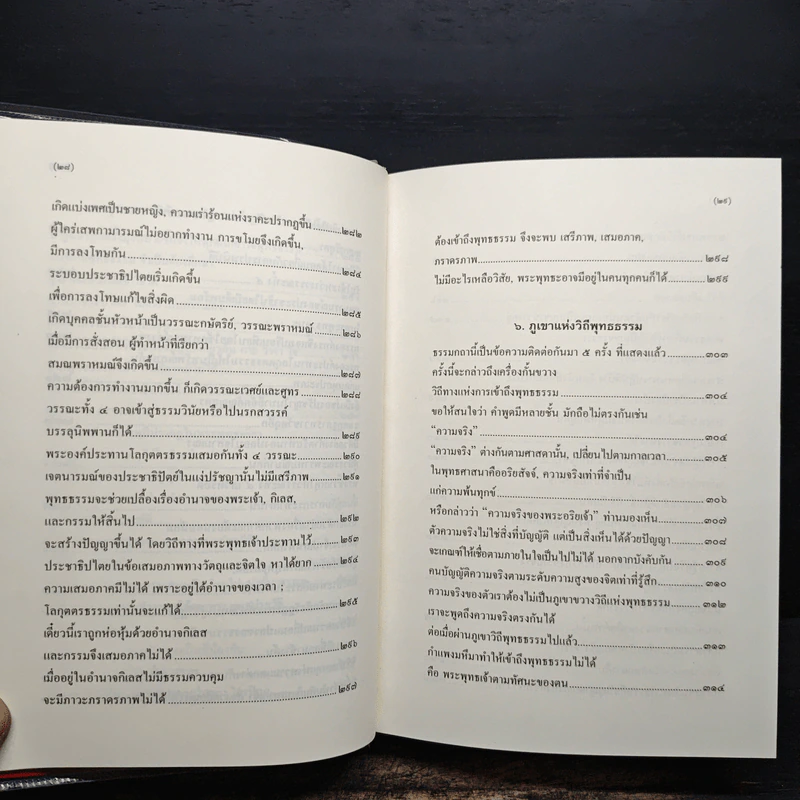 (๒๘)
เกิดแบ่งเพศเป็นชายหญิง, ความเร่าร้อนแห่งราคะปรากฏขึ้น ๒๘๒
ผู้ใคร่เสพกามารมณ์ไม่อยากทำงาน การขโมยจึงเกิดขึ้น,
มีการลงโทษกัน ๒๘๔
ระบอบประชาธิปไตยเริ่มเกิดขึ้น
เพื่อการลงโทษแก้ไขสิ่งผิด ๒๘๕
เกิดบุคคลชั้นหัวหน้าเป็นวรรณะกษัตริย์, วรรณะพราหมณ์ ๒๘๖
เมื่อมีการสั่งสอน ผู้ทำหน้าที่เรียกว่า
สมณพราหมณ์จึงเกิดขึ้น ๒๘๗
ความต้องการทำงานมากขึ้น ก็เกิดวรรณะเวศย์และศูทร ๒๘๘
วรรณะทั้ง ๔ อาจเข้าสู่ธรรมวินัยหรือไปนรกสวรรค์
บรรลุนิพพานก็ได้ ๒๘๙
พระองค์ประทานโลกุตตรธรรมเสมอกันทั้ง ๔ วรรณะ ๒๙๐
เจตนารมณ์ของประชาธิปัตย์ในแง่ปรัชญานั้นไม่มีเสรีภาพ ๒๙๑
พุทธธรรมจะช่วยเปลื้องเรื่องอำนาจของพระเจ้า, กิเลส,
และกรรมให้สิ้นไป ๒๙๒
จะสร้างปัญญาขึ้นได้ โดยวิถีทางที่พระพุทธเจ้าประทานไว้ ๒๙๓
ประชาธิปไตยในข้อเสมอภาพทางวัตถุและจิตใจ หาได้ยาก
ความเสมอภาคมีไม่ได้ เพราะอยู่ใต้อำนาจของเวลา ;
โลกุตตรธรรมเท่านั้นจะแก้ได้ ๒๙๕
เดี๋ยวนี้เราถูกห่อหุ้มด้วยอำนาจกิเลส
และกรรมจึงเสมอภาคไม่ได้ ๒๙๖
เมื่ออยู่ในอำนาจกิเลสไม่มีธรรมควบคุม
จะมีภาวะภราดรภาพไม่ได้ ๒๙๗
(๒๙)
ต้องเข้าถึงพุทธธรรม จึงจะพบ เสรีภาพ, เสมอภาค,
ภราดรภาพ ๒๙๘
ไม่มีอะไรเหลือวิสัย, พระพุทธะอาจมีอยู่ในคนทุกคนก็ได้ ๒๙๙
๖. ภูเขาแห่งวิถีพุทธธรรม
ธรรมกถานี้เป็นข้อความติดต่อกันมา ๕ ครั้ง ที่แสดงแล้ว ๓๐๓
ครั้งนี้จะกล่าวถึงเครื่องกั้นขวาง
วิถีทางแห่งการเข้าถึงพุทธธรรม ๓๐๔
ขอให้สนใจว่า คำพูดมีหลายชั้น มักถือไม่ตรงกันเช่น
“ความจริง” ๓๐๔
“ความจริง” ต่างกันตามศาสดานั้น, เปลี่ยนไปตามกาลเวลา ๓๐๕
ในพุทธศาสนาคืออริยสัจจ์, ความจริงเท่าที่จำเป็น
แก่ความพ้นทุกข์ ๓๐๖
หรือกล่าวว่า “ความจริงของพระอริยเจ้า” ท่านมองเห็น ๓๐๗
ตัวความจริงไม่ใช่สิ่งที่บัญญัติ แต่เป็นสิ่งเห็นได้ด้วยปัญญา ๓๐๘
จะเกณฑ์ให้เชื่อตามภายในใจเป็นไปไม่ได้ นอกจากบังคับกัน ๓๐๙
คนบัญญัติความจริงตามระดับความสูงของจิตเท่าที่รู้สึก ๓๑๐
ความจริงของตัวเราต้องไม่เป็นภูเขาขวางวิถีแห่งพุทธธรรม ๓๑๒
เราจะพูดถึงความจริงตรงกันได้
ต่อเมื่อผ่านภูเขาวิถีพุทธธรรมไปแล้ว ๓๑๓
กำแพงมหึมาทำให้เข้าถึงพุทธธรรมไม่ได้
คือ พระพุทธเจ้าตามทัศนะของตน ๓๑๔